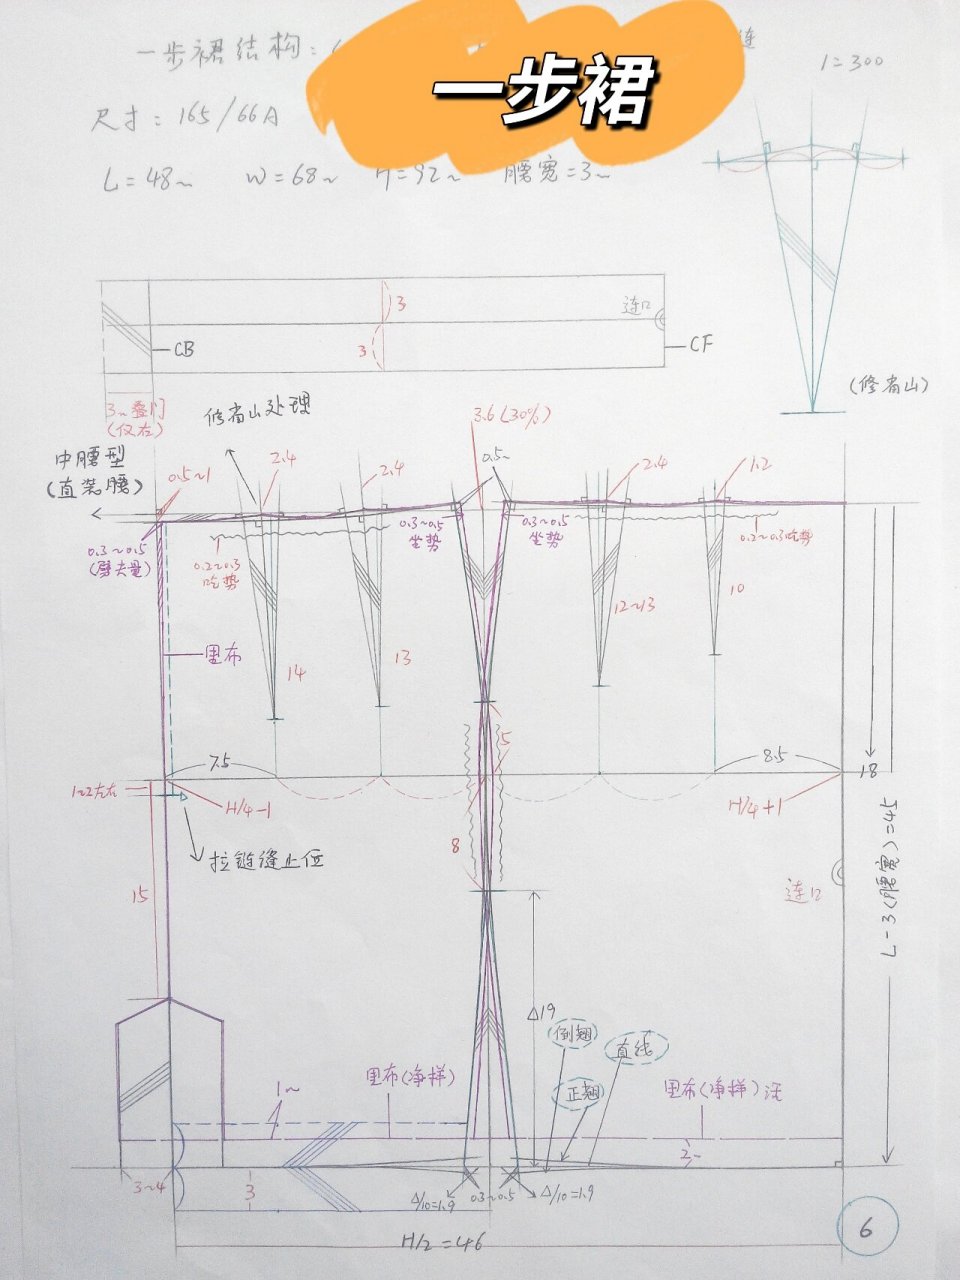 一步裙结构:
一步裙
连
1=300
尺寸: 165/66A
L=48~ W=68~ H=92~ 腰宽=3~
3
连口
CB
3
CF
(修省山)
3~叠门
(仅左)
修省山处理
3.6(30%)
中腰型
(直装腰)
0.5~1
2.4
2.4
0.5~
2.4
1.2
0.3~0.5
(劈去量)
0.2~0.3
吃势
0.3~0.5
坐势
0.3~0.5
坐势
0.2~0.3吃势
12~13
10
里布
14
13
5
7.5
8.5
18
1~2左右
H/4-1
H/4+1
拉链缝止位
8
15
连口
L-3(腰宽)=45
△19
倒翘
直线
正翘
1~
里布(净样)
里布(净样)
2~
3~4
3
△/10=1.9
0.3~0.5
△/10=1.9
H/2=46
6